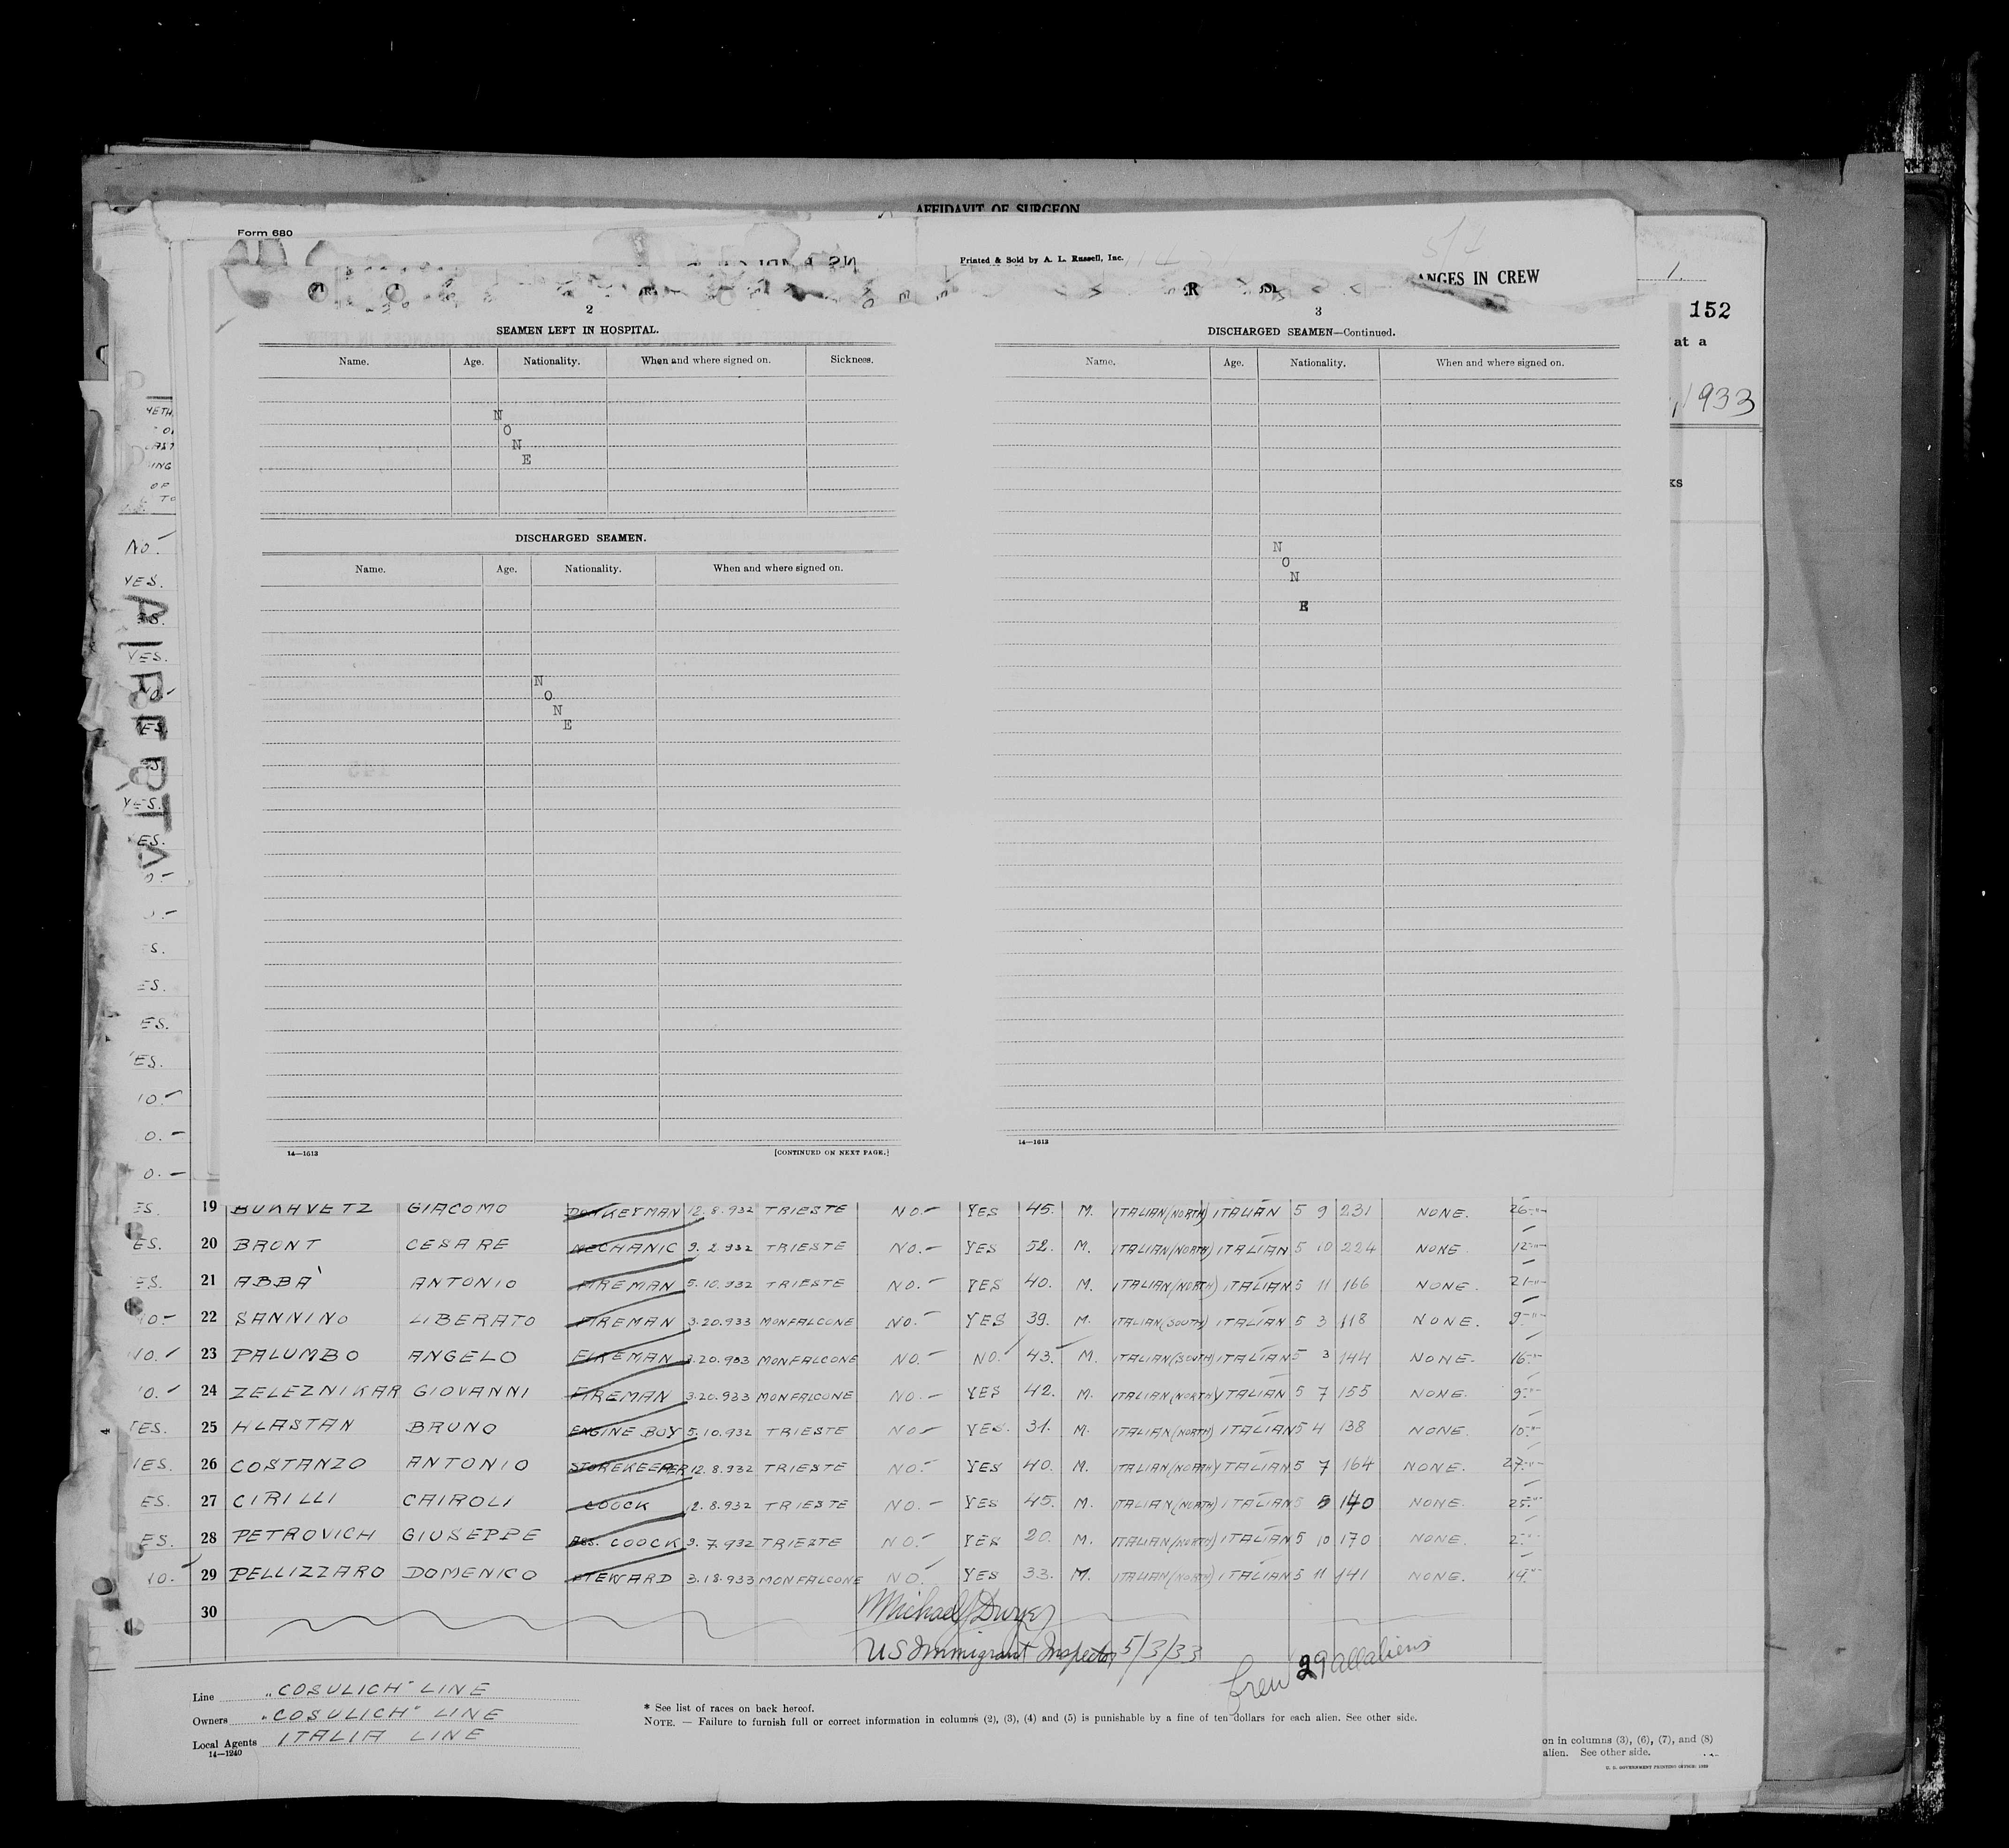 AFFIDAVIT OF SURGEON
Form 680
Printed & Sold by A. L. Russell, Inc.
5/4
ANGES IN CREW
1.
152
at a
1933
KS
2
SEAMEN LEFT IN HOSPITAL.
Name. Age. Nationality. When and where signed on. Sickness.
N
O
N
E
DISCHARGED SEAMEN.
Name. Age. Nationality. When and where signed on.
N
O
N
E
14—1613
[CONTINUED ON NEXT PAGE.]
3
DISCHARGED SEAMEN—Continued.
Name. Age. Nationality. When and where signed on.
N
O
N
E
14—1613
ALBERTA
NO.
YES.
YES.
YES.
19 GIACOMO DONKEYMAN 12.8.932 TRIESTE NO.- YES 45. M. ITALIAN(NORTH) ITALIAN 5 9 231 NONE. 26
ES. 20 BRONT CESARE MECHANIC 9.2.932 TRIESTE NO.- YES 52. M. ITALIAN(NORTH) ITALIAN 5 10 224 NONE 12
ES. 21 ABBA' ANTONIO FIREMAN 5.10.932 TRIESTE NO.- YES 40. M. ITALIAN(NORTH) ITALIAN 5 11 166 NONE. 21
22 SANNINO LIBERATO FIREMAN 3.20.933 MONFALCONE NO.- YES 39. M. ITALIAN(SOUTH) ITALIAN 5 3 118 NONE. 9
NO. 23 PALUMBO ANGELO FIREMAN 3.20.933 MONFALCONE NO.- NO. 43. M. ITALIAN(SOUTH) ITALIAN 5 3 144 NONE. 16
24 ZELEZNIKAR GIOVANNI FIREMAN 3.20.933 MONFALCONE NO.- YES 42. M. ITALIAN(NORTH) ITALIAN 5 7 155 NONE. 9
25 HLASTAN BRUNO ENGINE BOY 5.10.932 TRIESTE NO- YES. 31. M. ITALIAN(NORTH) ITALIAN 5 4 138 NONE. 10
26 COSTANZO ANTONIO STOREKEEPER 12.8.932 TRIESTE NO.- YES 40. M. ITALIAN(NORTH) ITALIAN 5 7 164 NONE. 27
ES. 27 CIRILLI CAIROLI COOCK 12.8.932 TRIESTE NO.- YES 45. M. ITALIAN(NORTH) ITALIAN 5 5 140 NONE. 25
ES. 28 PETROVICH GIUSEPPE ASS. COOCK 9.7.932 TRIESTE NO.- YES 20. M. ITALIAN(NORTH) ITALIAN 5 10 170 NONE. 2
29 PELLIZZARO DOMENICO STEWARD 3.18.933 MONFALCONE NO. YES 33. M. ITALIAN(NORTH) ITALIAN 5 11 141 NONE. 19
30 Michael J Dwyer
US Immigrant Inspector 5/3/33
Crew 29 all aliens
Line "COSULICH" LINE
Owners "COSULICH" LINE
Local Agents ITALIA LINE
14—1240
* See list of races on back hereof.
NOTE. — Failure to furnish full or correct information in columns (2), (3), (4) and (5) is punishable by a fine of ten dollars for each alien. See other side.
on in columns (3), (6), (7), and (8)
alien. See other side.
U. S. GOVERNMENT PRINTING OFFICE: 1932